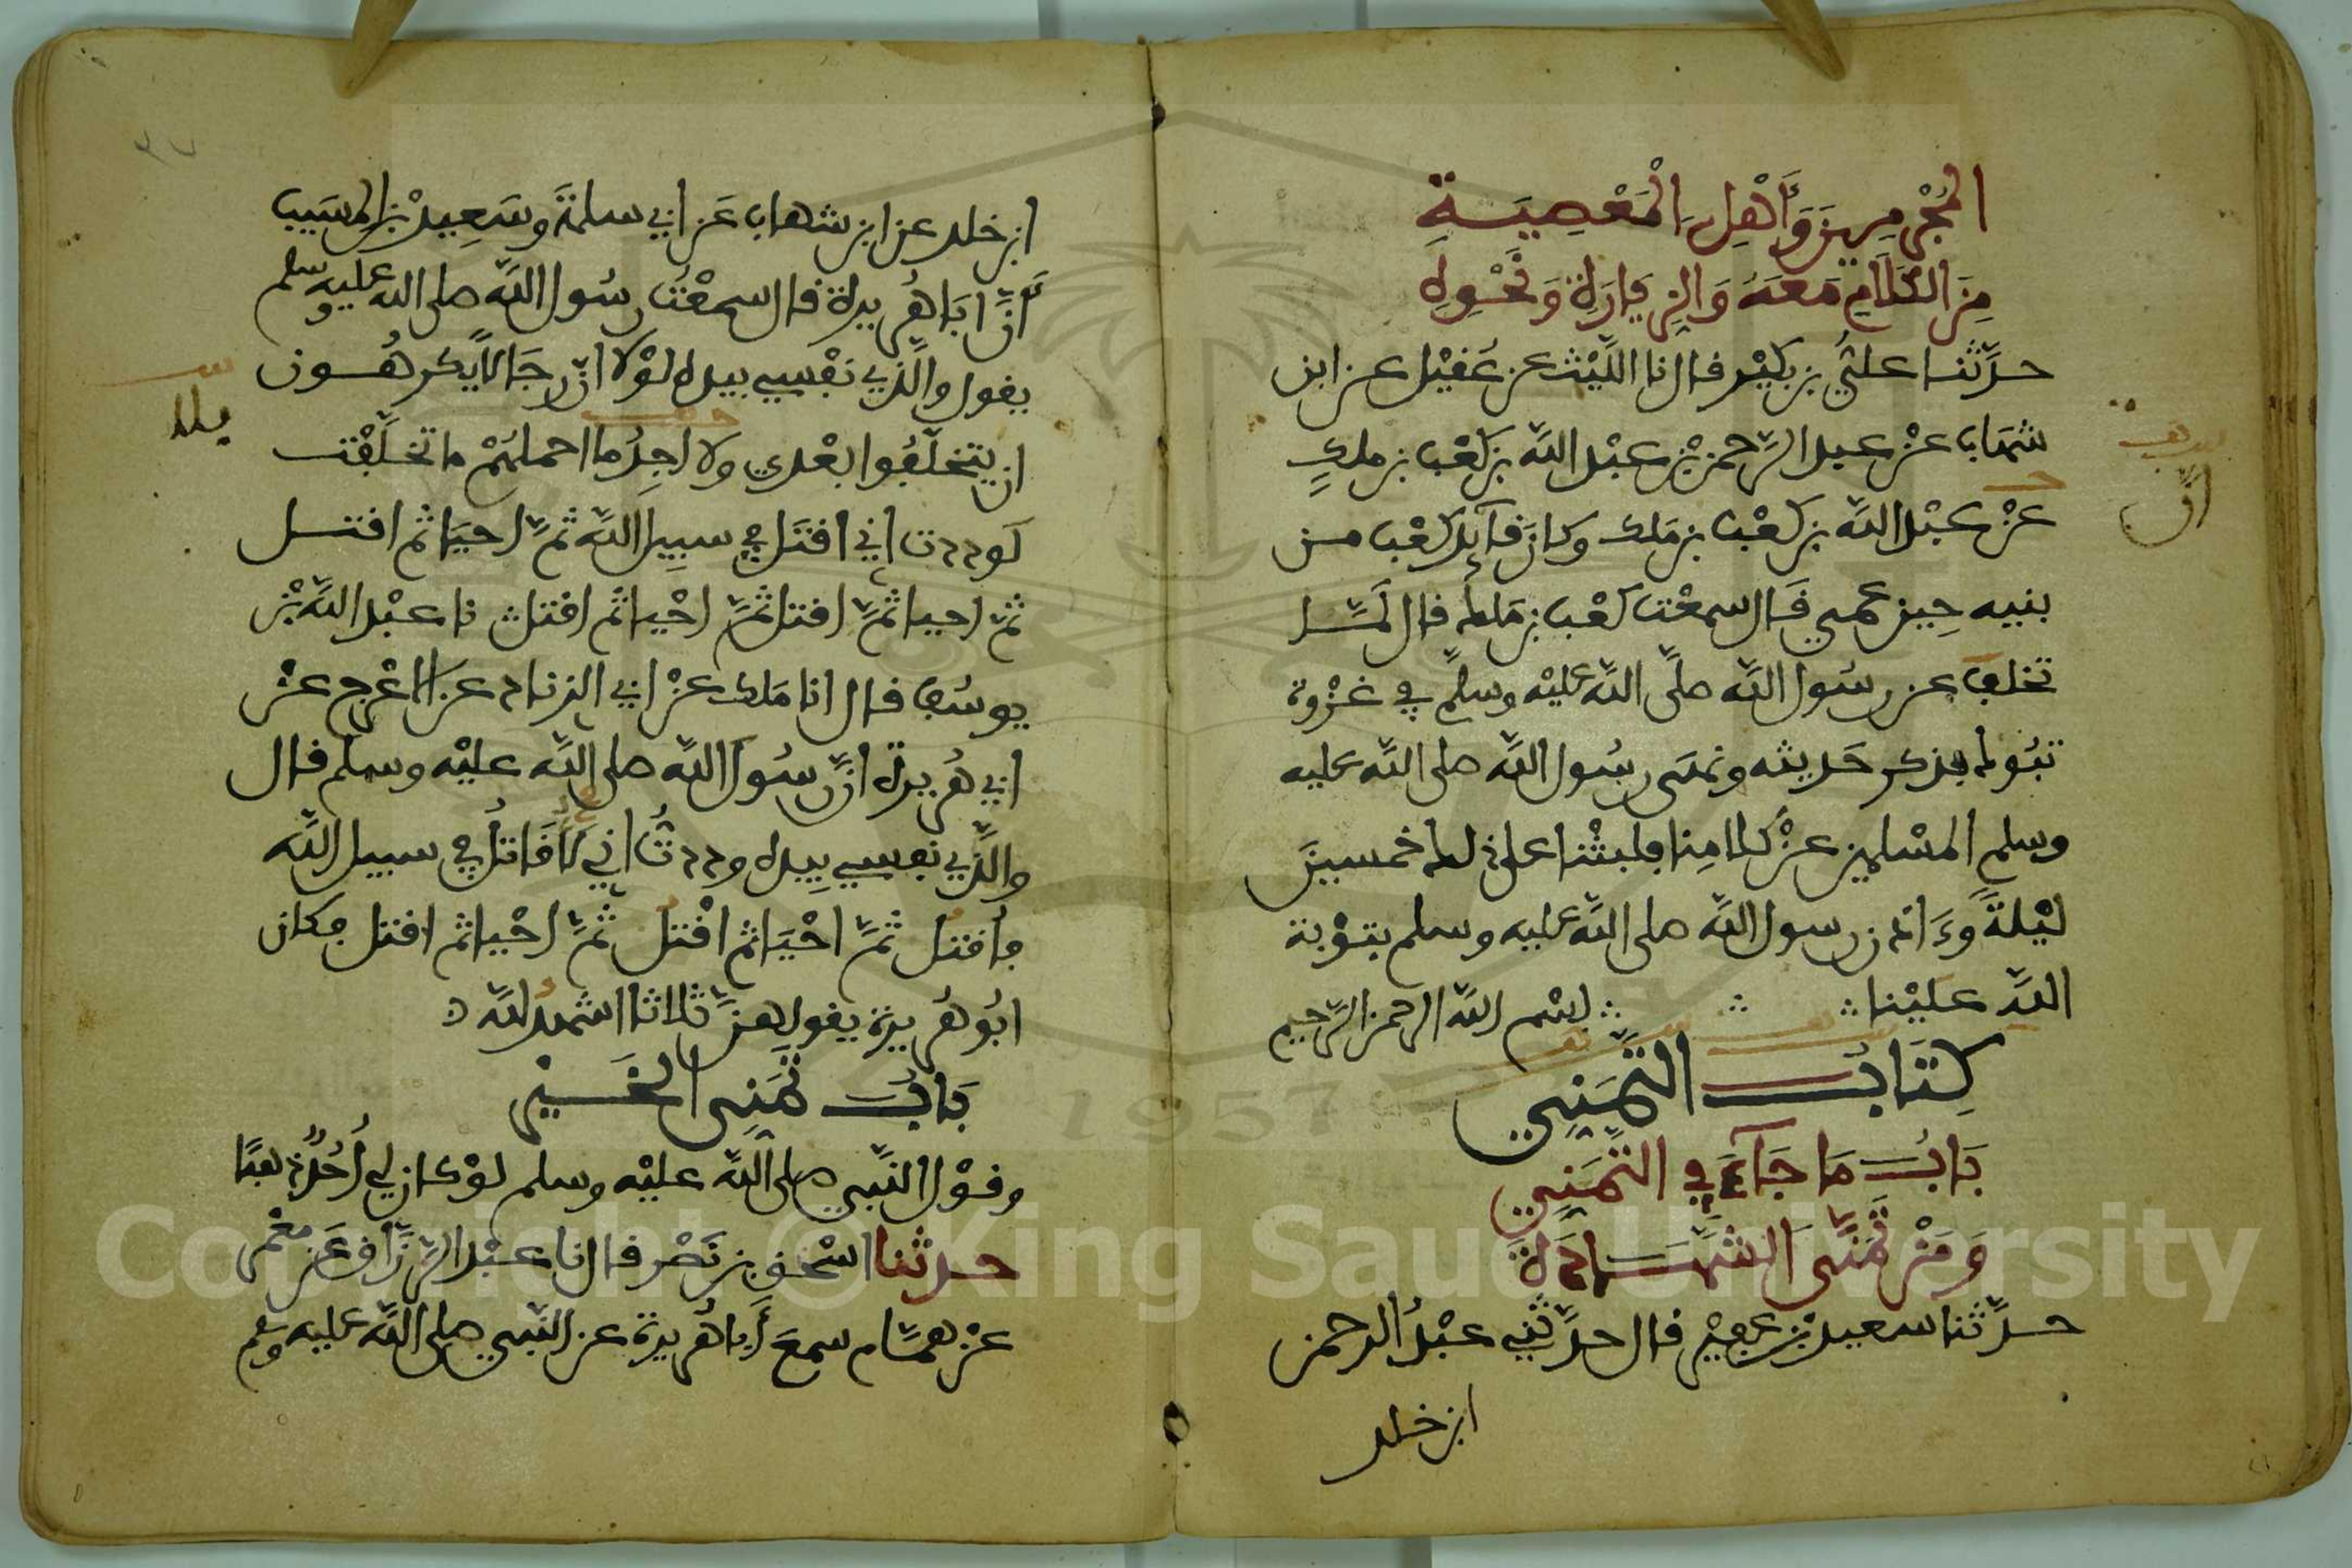 المُجْرِمِينَ وَأَهْلِ الْمَعْصِيَةِ
مِنَ الكَلَامِ مَعَهُ وَالزِّيَارَةِ وَنَحْوِهِ
حدّثنا علي بن بكير قال نا اللّيث عن عُقيل عن ابن
شهاب عنْ عبد الرّحمن بن عبْد اللّه بن كعْب بن ملك
عنْ عبْد اللّه بن كعْب بن ملك وكان قآيد كعْب من
بنيه حين عمي قال سمعْت كعْب بن ملك قال لمّا
تخلف عن رسُول اللّه صلّى اللّه عليْه وسلم في غزْوة
تبُوك فذكر حديثه ونهى رسُول اللّه صلى اللّه عليه
وسلم المسْلمين عنْ كلامنا فلبثْنا على ذلك خمسين
ليْلةً وءَاذن رسول اللّه صلى اللّه عليه وسلم بتوْبة
اللّه عليْنا ∴ ∴ ∴ بسْم اللّه الرحمن الرّحيم
كِتَابُ التَّمَنِّي
بَابُ مَا جَآءَ فِي التَّمَنِّي
وَمَنْ تَمَنَّى الشَّهَادَةَ
حدّثنا سعيد بْن عفيْر قال حدّثني عبْدُ الرحمن
ابن خلد
ان
ابن خلد عن ابن شهاب عَن ابي سلمةَ وسَعِيد بْن المسَيب
أنّ ابَا هُريرة قال سمعْتُ رسُول اللّه صلى اللّه عليه وسلم
يقول والّذي نفْسي بيده لوْلا انّ رجَالًا يكرهُون
ان يتخلّفُوا بعْدي ولا اجِدُ ما احملهُمْ ما تخلّفْت
لَوددت اني اقتَل في سبيل اللّه ثمّ احيَا ثمْ اقتل
ثمّ احيا ثمّ اقتل ثمّ احْيا ثم اقتل نا عبْد اللّه بْن
يوسُف قال انا مَلك عنْ ابي الزناد عن الاعْرج عنْ
ابي هُريرة انّ رسُول اللّه صلى اللّه عليْه وسلم قال
والّذي نفسي بيده وددتُ اني لَأُقَاتلُ في سبيل اللّه
فأقتل ثمّ احْيَا ثم اقْتل ثمّ احْيا ثم اقتل فكان
ابُو هُريرة يقولهنّ ثلاثا اشهد للّه
بَابُ تَمَنِّي الخَيْرِ
وقوْل النّبي صلى اللّه عليْه وسلم لوْ كان لي أُحُدٌ ذهبًا
حدثنا اسْحق بن نَصْر قال نا عبْد الرّزّاق عَن معْمر
عنْ همّام سمعَ أبا هُريرة عن النّبي صلى اللّه عليه وسلم
بيده